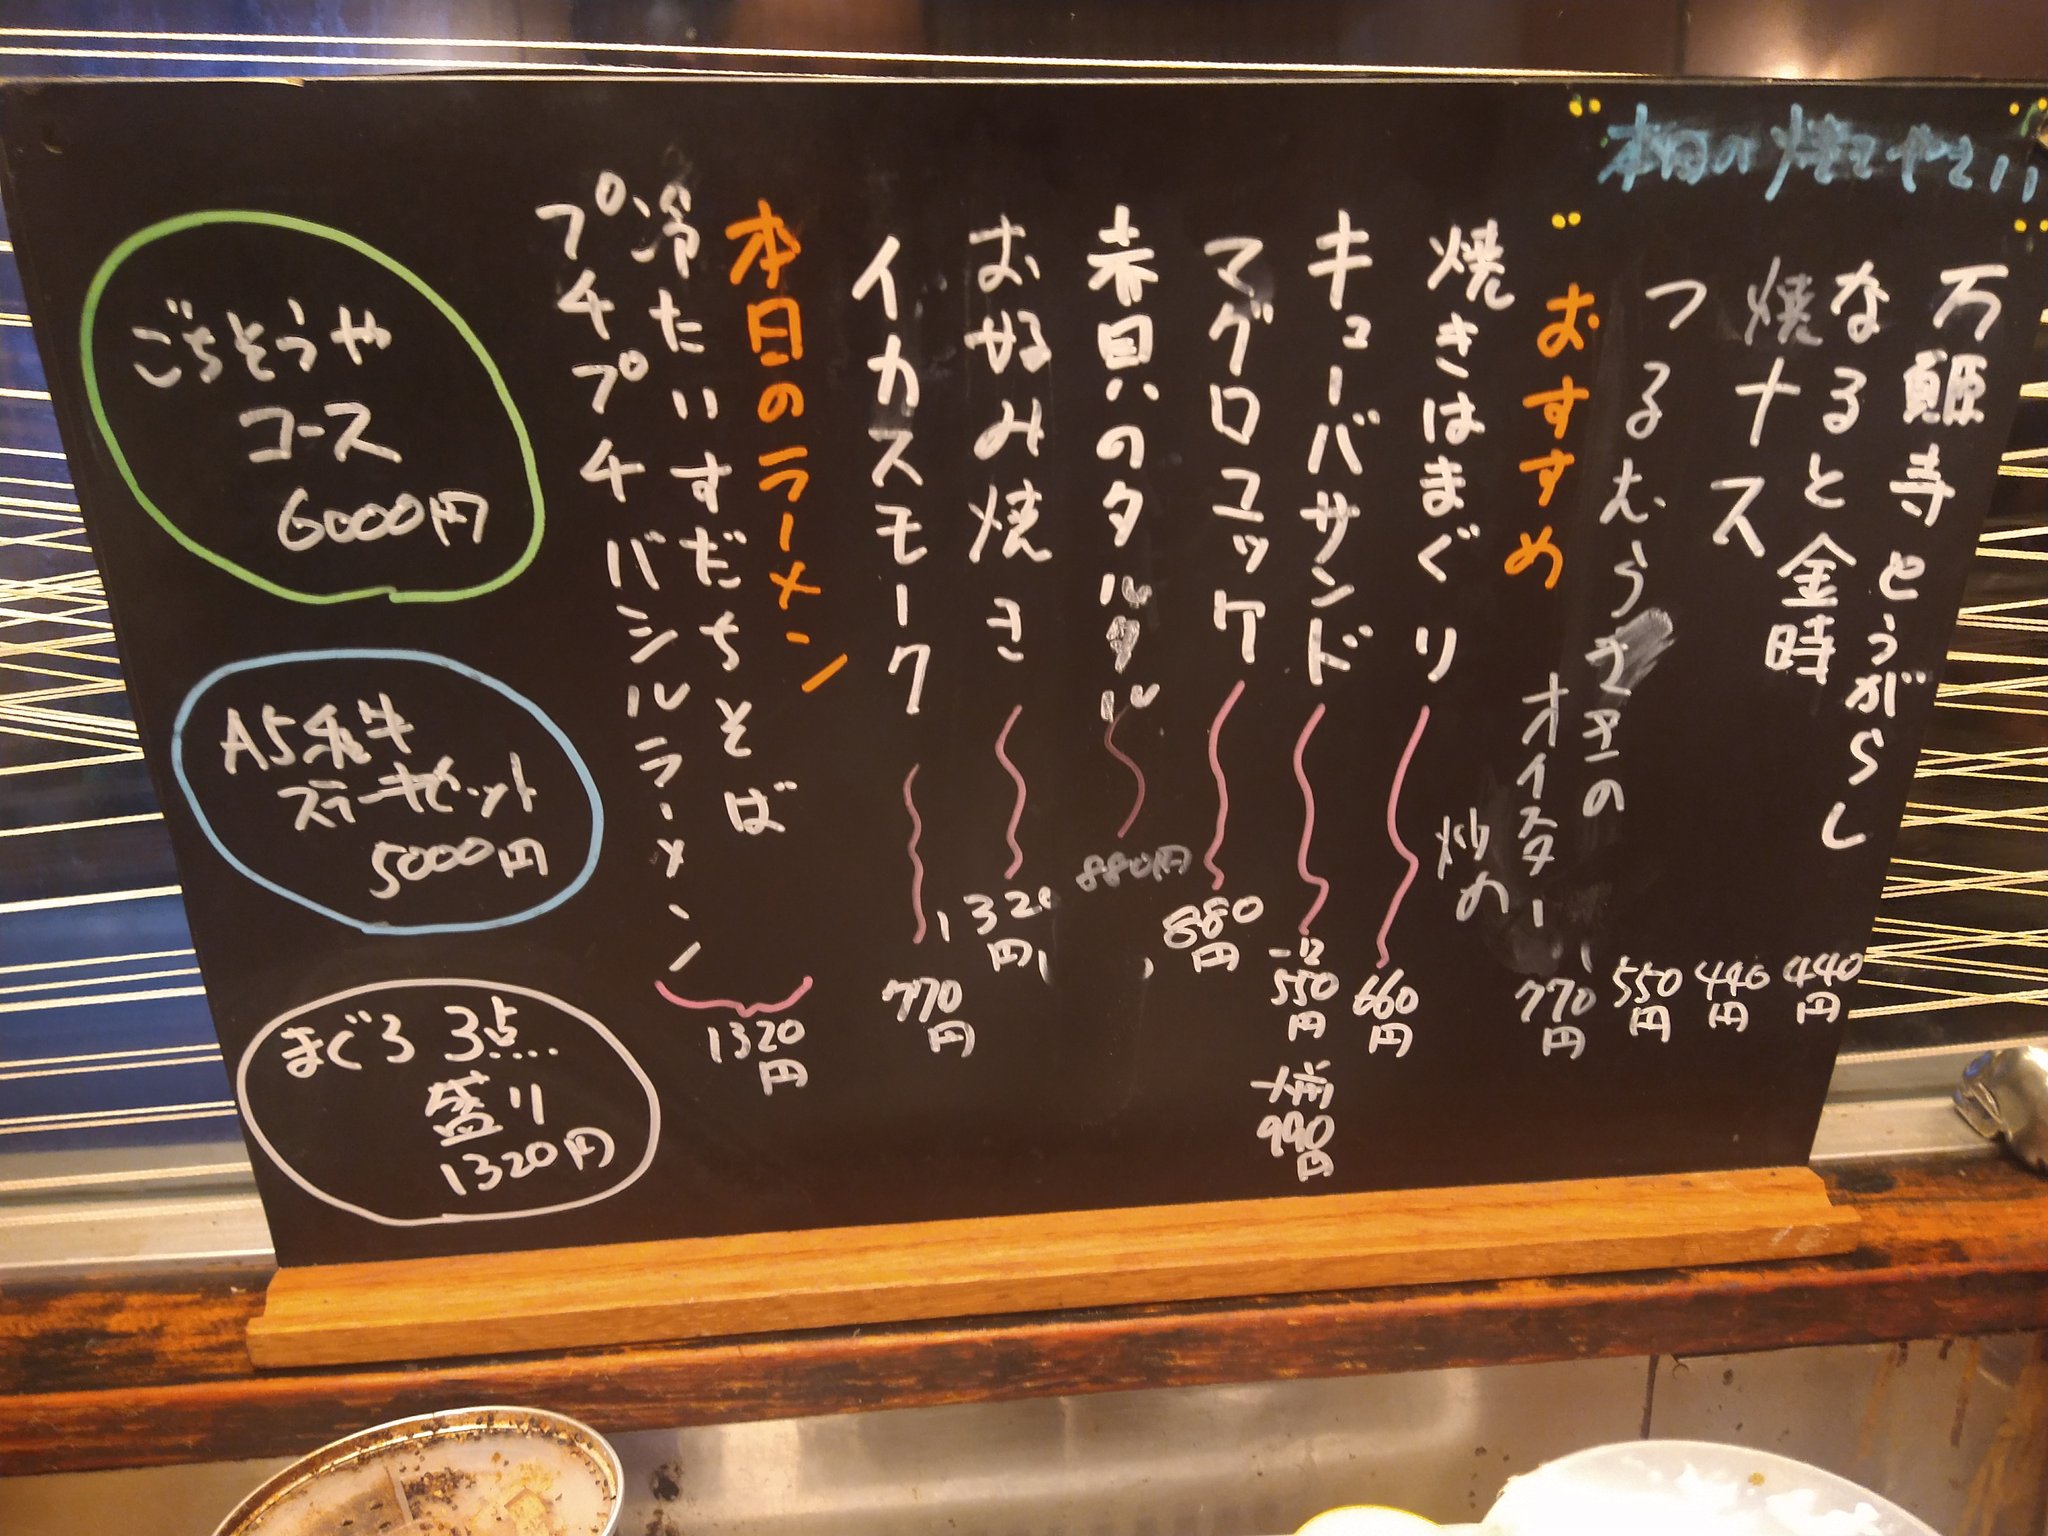 本日の焼きやさい
万願寺とうがらし 440円
なると金時 440円
焼ナス 550円
つるむらさきの
オイスター
炒め 770円
おすすめ
焼きはまぐり 660円
キューバサンド 550円
990円
マグロユッケ 880円
赤貝のタルタル 880円
お好み焼き 1320円
イカスモーク 770円
本日のラーメン
冷たいすだちそば
プチプチバジルラーメン
1320円
ごちそうや
コース
6000円
A5和牛
ステーキセット
5000円
まぐろ3点
盛り
1320円